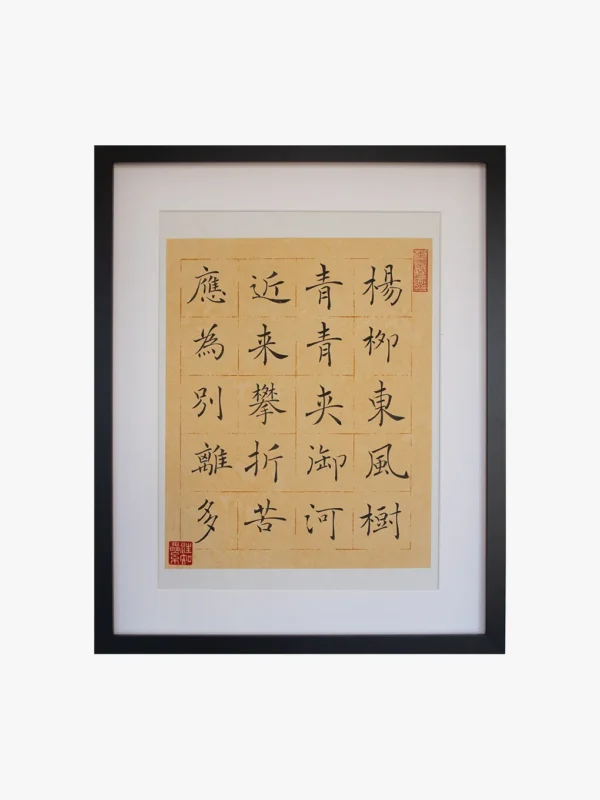 楊柳東風樹
青青夹御河
近来攀折苦
應為別離多